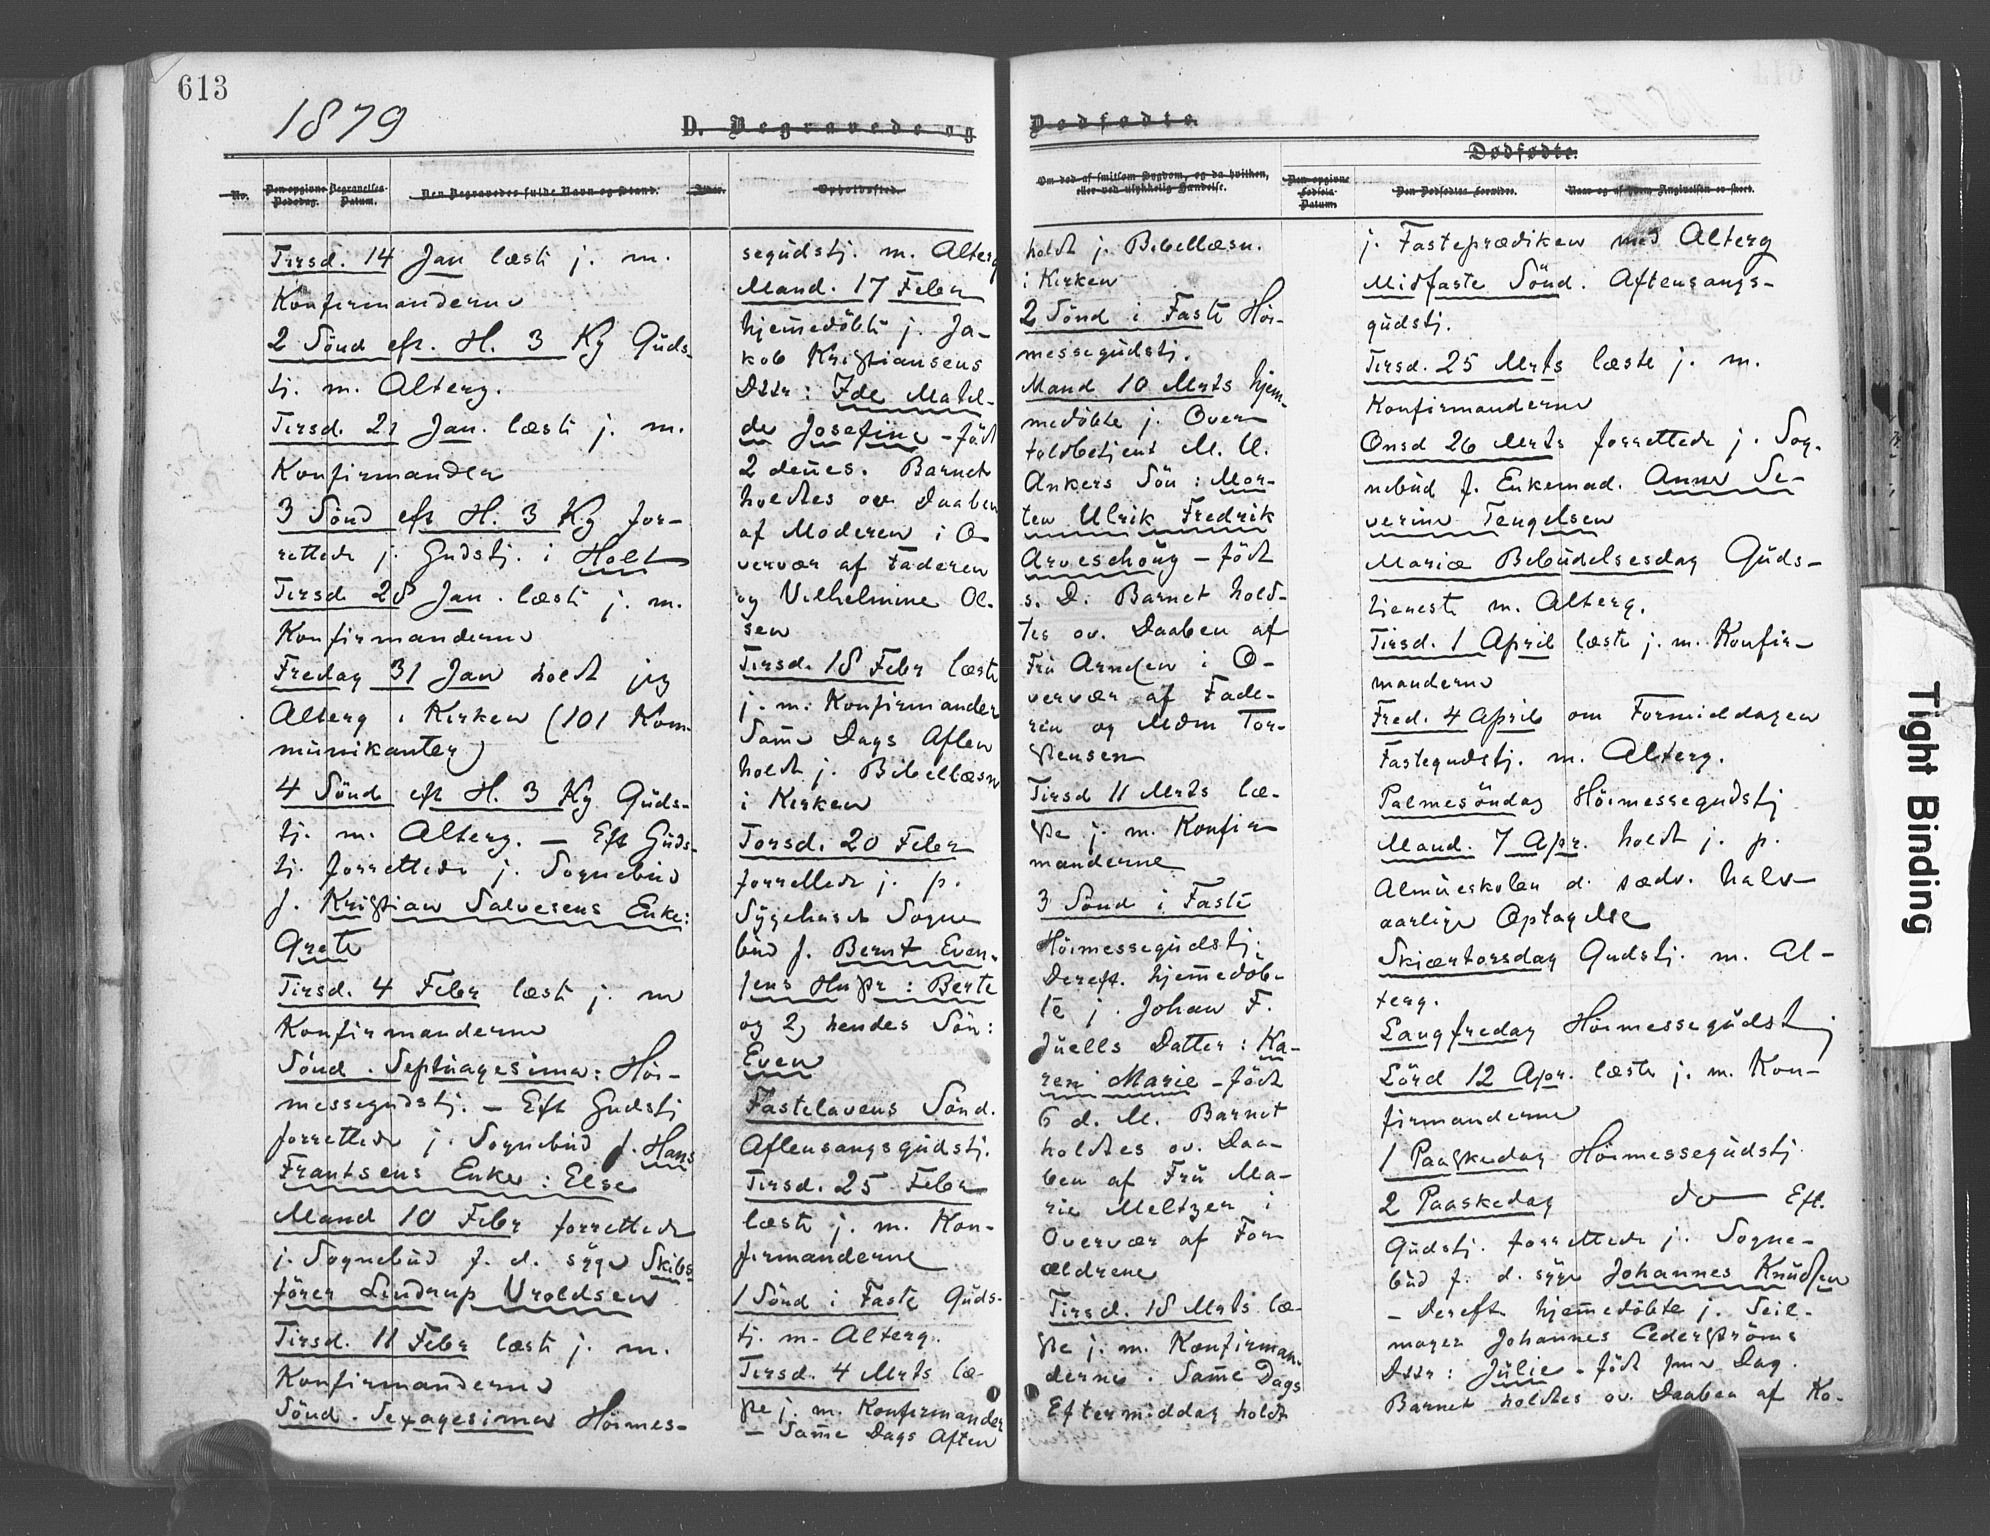 613
1879
D. Begravede og
No.
Den opgivne Dødsdag.
Begravelses-Datum.
Den Begravedes fulde Navn og Stand.
Alder.
Opholdssted.
Tirsd. 14 Jan læste j. m.
Konfirmanderne
2 Sönd eft. H. 3 Kg Guds-
tj. m. Alterg.
Tirsd. 21 Jan. læste j. m.
Konfirmander
3 Sönd eft H. 3 Kg for-
rettede j. Gudstj. i Holt
Tirsd 28 Jan. læste j. m.
Konfirmanderne
Fredag 31 Jan holdt jeg
Alterg i Kirken (101 Kom-
munikanter)
4 Sönd eft H. 3 Kg Guds-
tj. m. Alterg. — Eft Guds-
tj. forrettede j. Sognebud
f. Kristian Salvesens Enke:
Grete
Tirsd. 4 Febr læste j. m
Konfirmanderne
Sönd. Septuagesima: Höi-
messegudstj. — Eft Gudstj
forrettede j. Sognebud f. Hans
Frantsens Enke: Else
Mand 10 Febr forrettede
j. Sognebud f. d. syge Skibs
förer Lindrup Uroldsen
Tirsd. 11 Febr læste j. m.
Konfirmanderne
Sönd. Sexagesima Höimes-
segudstj. m. Alterg
Mand. 17 Febr
hjem̄edöbte j. Ja-
kob Kristiansens
Dttr: Ida Matil-
de Josefine – födt
2 den̄es. Barnet
holdtes ov. Daaben
af Moderen i O-
vervær af Faderen
og Vilhelmine Ol-
sen
Tirsd. 18 Febr læste
j. m. Konfirmander
Sam̄e Dags Aften
holdt j. Bibellæsn
i Kirken
Torsd. 20 Febr
forrettede j. p.
Sygehuset Sogne
bud f. Bernt Even-
sens Hustr: Berte
og 2) hendes Sön:
Even
Fastelavens Sönd.
Aftensangsgudstj.
Tirsd. 25 Febr
læste j. m. Kon-
firmanderne
1 Sönd i Faste Guds-
tj. m. Alterg.
Tirsd. 4 Mrts læ-
ste j. m. Konfirmander
— Sam̄e Dags Aften
Dødfødte.
Om død af smitsom Sygdom, og da hvilken, eller ved ulykkelig Hændelse.
Dødfødte.
Den opgivne Fødsels-Datum.
Den Dødfødtes Forældre.
Naar og af hvem Angivelsen er skeet.
holdt j. Bibellæsn.
i Kirken
2 Sönd i Faste Höi-
messegudstj.
Mand 10 Mrts hjem-
medöbte j. Over
toldbetjent M. U.
Ankers Sön: Mor-
ten Ulrik Fredrik
Arveschoug – födt
s. D. Barnet hold-
tes ov. Daaben af
Fru Arnesen i O-
vervær af Fade-
ren og Mdm Tor-
stensen
Tirsd 11 Mrts læ-
ste j. m. Konfir
manderne
3 Sönd i Faste
Höimessegudstj.
Dereft. hjem̄edöb-
te j. Johan F.
Juells Datter: Ka-
ren Marie – födt
6 d. M. Barnet
holdtes ov. Daa-
ben af Fru Ma-
rie Meltzer i
Overvær af For
ældrene
Tirsd. 18 Mrts læ-
ste j. m. Konfirman-
derne. Sam̄e Dags
Eftermiddag holdt
j. Fasteprædiken med Alterg
Midfaste Sönd. Aftensangs-
gudstj.
Tirsd. 25 Mrts læste j. m.
Konfirmanderne
Onsd 26 Mrts forrettede j. Sog-
nebud f. Enkemad. Anne Se-
verine Tengelsen
Mariæ Bebudelsesdag Guds-
tjeneste m. Alterg.
Tirsd. 1 April læste j. m. Konfir-
manderne
Fred. 4 April om Formiddagen
Fastegudstj. m. Alterg.
Palmesöndag Höimessegudstj
Mand. 7 Apr. holdt j. p.
Almueskolen d. sædv. halv
aarlige Optagelse
Skjærtorsdag Gudstj. m. Al-
terg.
Langfredag Höimessegudstj
Lörd 12 Apr. læste j. m. Kon-
firmanderne
1 Paaskedag Höimessegudstj
2 Paaskedag do — Eft.
Gudstj. forrettede j. Sogne-
bud f. d. syge Johannes Knudsen
— Dereft. hjem̄edöbte j. Seil-
mager Johannes Cederströms
Dttr: Julie – födt sm̄e Dag.
Barnet holdtes ov. Daaben af Ko-
Tight Binding